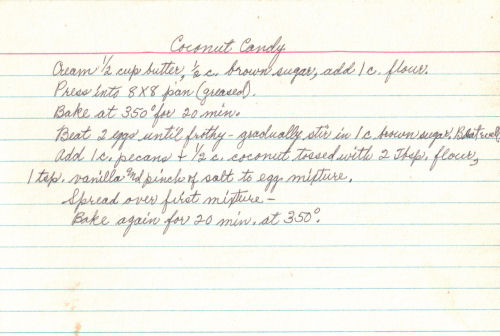 Coconut Candy
Cream 1/2 cup butter, 1/2 c. brown sugar, add 1 c. flour.
Press into 8X8 pan (greased).
Bake at 350° for 20 min.
Beat 2 eggs until frothy - gradually stir in 1 c. brown sugar. Beat well
Add 1 c. pecans + 1/2 c. coconut tossed with 2 Tbsp. flour,
1 tsp. vanilla and pinch of salt to egg mixture.
Spread over first mixture -
Bake again for 20 min. at 350°.